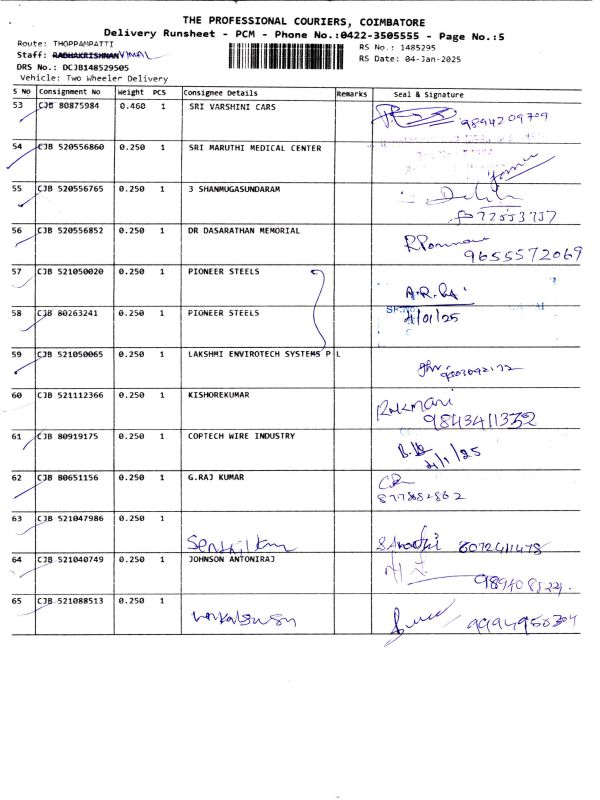 THE PROFESSIONAL COURIERS, COIMBATORE
Delivery Runsheet - PCM - Phone No.:0422-3505555 - Page No.:5
Route: THOPPAMPATTI
RS No.: 1485295
Staff: RADHAKRISHNAN VIMAL
RS Date: 04-Jan-2025
DRS No.: DCJB148529505
Vehicle: Two Wheeler Delivery
S No Consignment No Weight PCS Consignee Details Remarks Seal & Signature
53 CJB 80875984 0.460 1 SRI VARSHINI CARS 9894209709
54 CJB 520556860 0.250 1 SRI MARUTHI MEDICAL CENTER
55 CJB 520556765 0.250 1 3 SHANMUGASUNDARAM
56 CJB 520556852 0.250 1 DR DASARATHAN MEMORIAL 9655572069
57 CJB 521050020 0.250 1 PIONEER STEELS
58 CJB 80263241 0.250 1 PIONEER STEELS 4/01/25
59 CJB 521050065 0.250 1 LAKSHMI ENVIROTECH SYSTEMS P L
60 CJB 521112366 0.250 1 KISHOREKUMAR Rukmani
9843411332
61 CJB 80919175 0.250 1 COPTECH WIRE INDUSTRY 4/1/25
62 CJB 80651156 0.250 1 G.RAJ KUMAR
63 CJB 521047986 0.250 1 8072411478
64 CJB 521040749 0.250 1 JOHNSON ANTONIRAJ
65 CJB 521088513 0.250 1